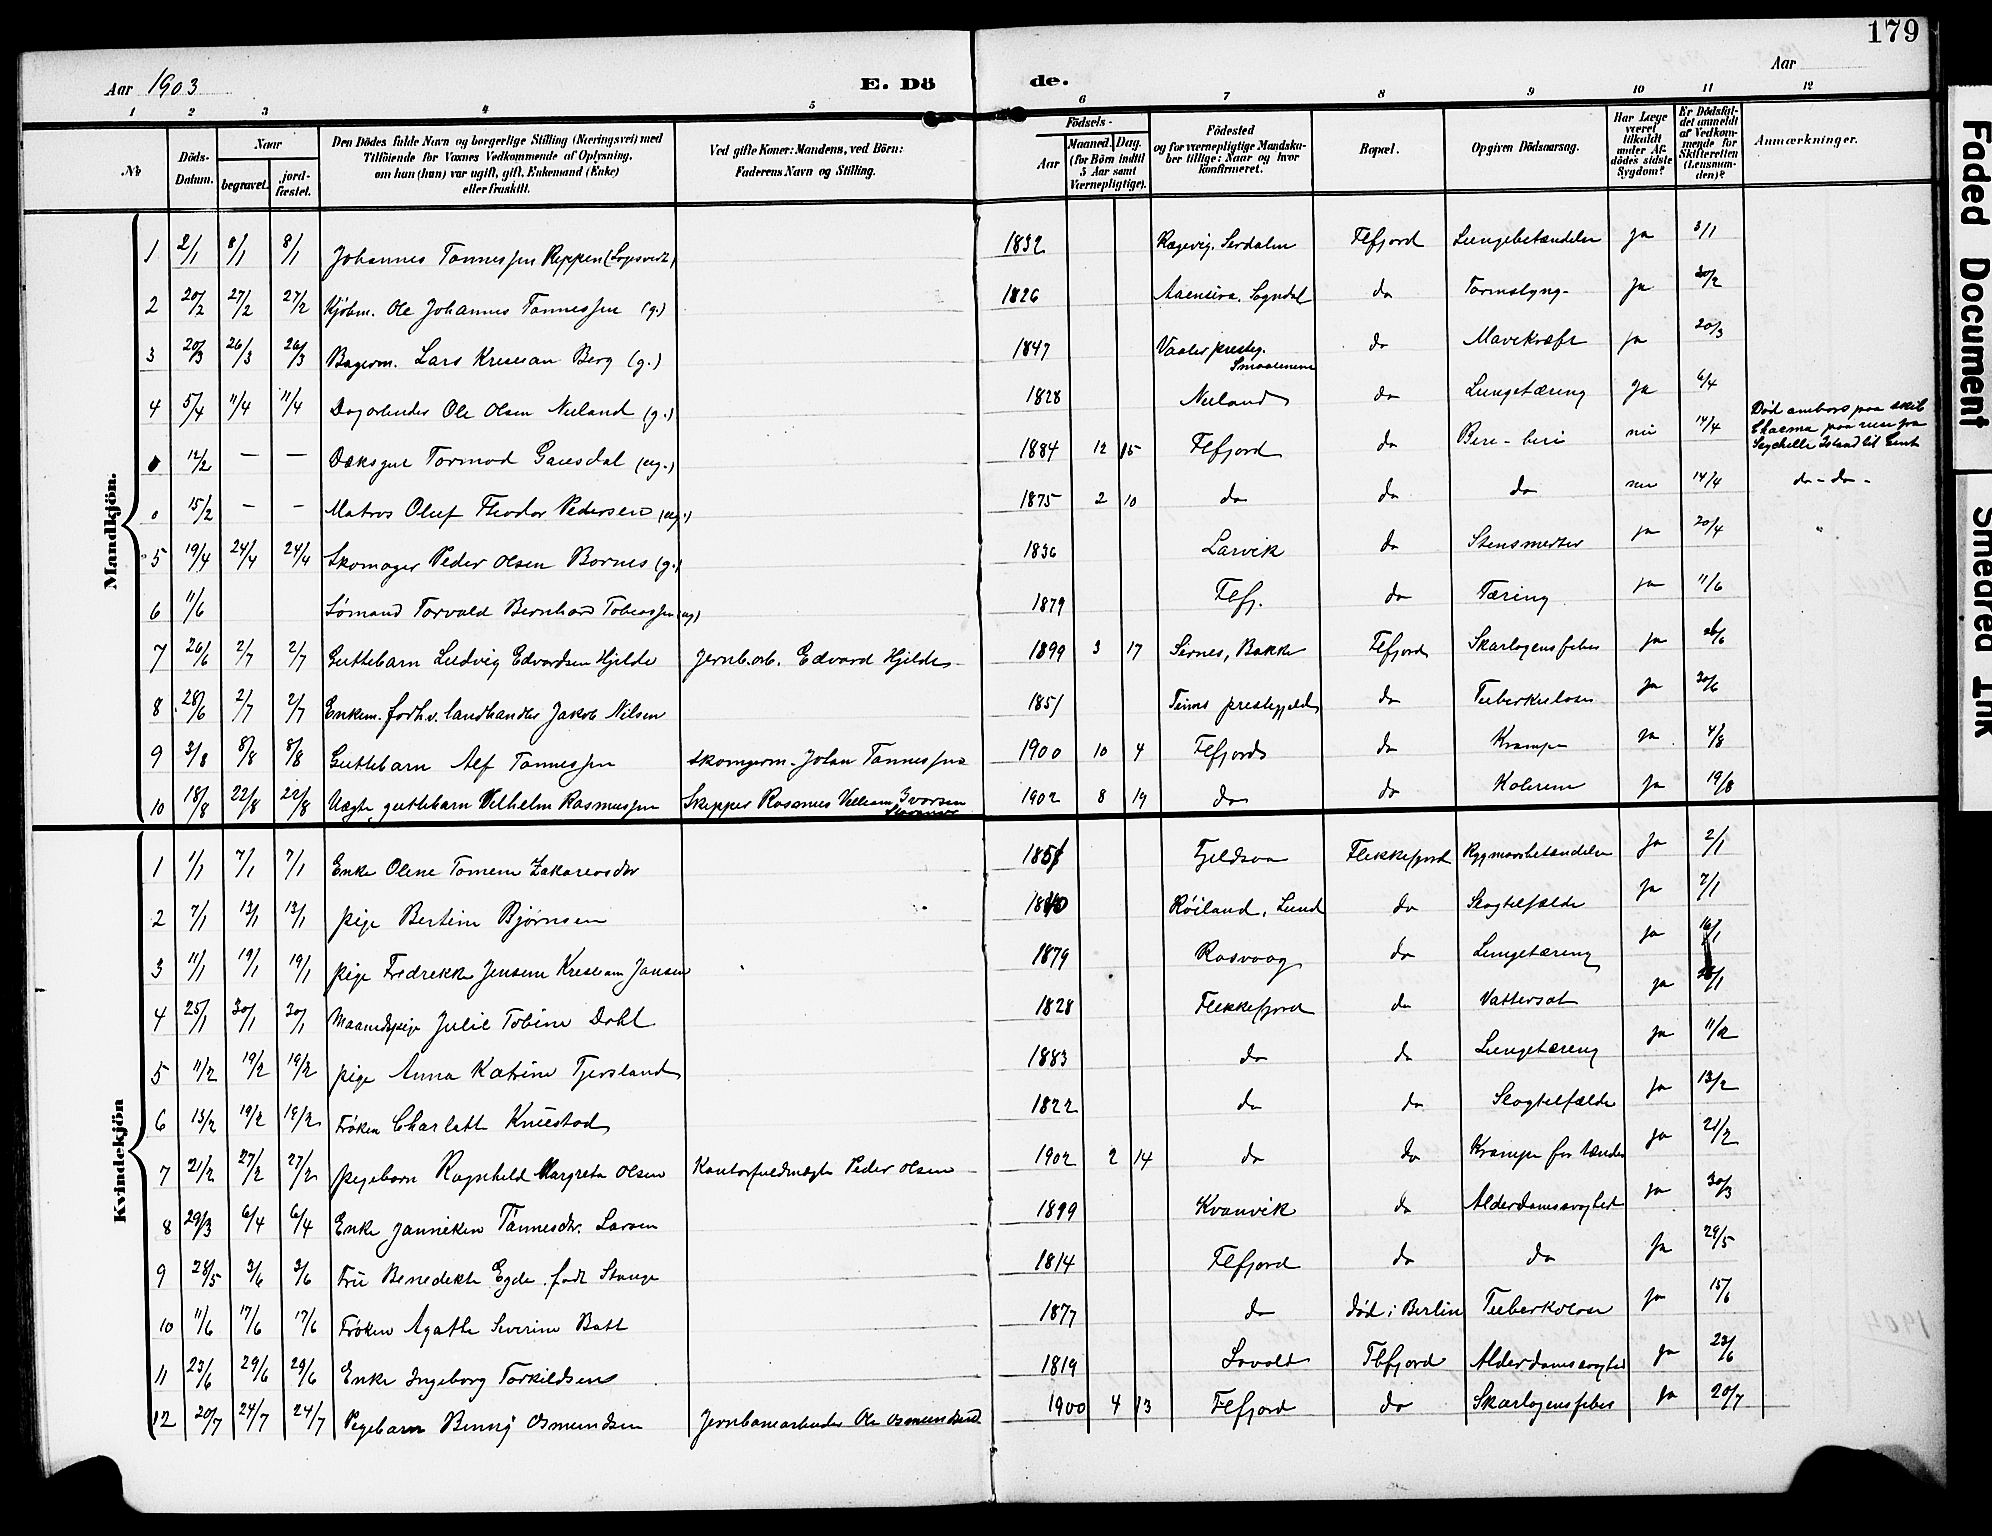 179
Aar 1903
E. Dö de.
Aar
1 2 3 4 5 6 7 8 9 10 11 12
No
Döds-Datum.
Naar
begravet.
jordfæstet.
Den Dödes fulde Navn og borgerlige Stilling (Næringsvei) med
Tilföiende for Voxnes Vedkommende af Oplysning,
om han (hun) var ugift, gift, Enkemand (Enke)
eller fraskilt.
Ved gifte Koner: Mandens, ved Börn:
Faderens Navn og Stilling.
Födsels-
Aar
Maaned. Dag.
(for Börn indtil
5 Aar samt
Værnepligtige).
Födested
og for værnepligtige Mandskaber tillige: Naar og hvor
konfirmeret.
Bopæl.
Opgiven Dödsaarsag.
Har Læge
været
tilkaldt
under Afdödes sidste
Sygdom?
Er Dödsfaldet anmeldt
af Vedkommende for
Skifteretten
(Lensmanden)?
Anmærkninger.
Mandkjön.
1 2/1 8/1 8/1 Johannes Tønnessen Reppen 1832 Flfjord Lungebetændelse ja 3/1
2 20/2 27/2 27/2 Kjøbm. Ole Johannes Tønnessen (g.) 1826 Aaensira, Sogndal do Tarmslyng ja 20/2
3 20/3 26/3 26/3 Bagerm. Lars Kristian Berg (g.) 1847 Vaaler presteg. Smaalenene do Mavekræft ja 20/3
4 5/4 11/4 11/4 Dagarbeider Ole Olsen Nuland (g.) 1828 Nuland do Lungetæring ja 6/4
0 12/2 — — Dæksgut Tormod Gausdal (ug.) 1884 12 15 Flfjord do Beri-beri nei 14/4 Død ombord paa skib Charma paa reise fra Seychelle Island til
0 15/2 - - Matros Oluf Theodor Pedersen (ug.) 1875 2 10 do do do nei 14/4 do - do -
5 19/4 24/4 24/4 Skomager Peder Olsen Bornes (g.) 1836 Larvik do Stensmerter ja 20/4 "
6 11/6 Sømand Torvald Bernhard Tobiassen (ug) 1879 Flfj. do Tæring ja 11/6
7 26/6 2/7 2/7 Guttebarn Ludvig Edvardsen Hjelde Jernb.arb. Edvard Hjelde 1899 3 17 Sirnes, Bakke Flfjord Skarlagensfeber ja 26/6
8 28/6 2/7 2/7 Enkem. forhv. landhandler Jakob Nilsen 1851 Tims prestegjeld do Tuberkulose ja 30/6
9 3/8 8/8 8/8 Guttebarn Alf Tønnessen skomagerm. Johan Tønnessen 1900 10 4 Flfjord do Krampe ja 4/8
10 18/8 22/8 22/8 Ægte guttebarn Vilhelm Rasmussen Skipper Rasmus Villiam Ivarsen 1902 8 19 do do Kolerine ja 19/8
Kvindekjön
1 1/1 7/1 7/1 Enke Oline Tomine Zakariasdtr Fjeldsaa Flekkefjord Rygmarvsbetændelse ja 2/1
2 7/1 13/1 13/1 pige Bertine Bjørnsen Røiland, Lund do Slagtilfælde ja 7/1
3 11/1 19/1 19/1 pige Fredrikke Jensine Kristiane Jansen 1879 Rasvaag do Lungetæring ja 16/1
4 25/1 30/1 30/1 Maanedspige Julie Tobine Dahl 1828 Flekkefjord do Vattersot ja 25/1
5 11/2 19/2 19/2 pige Anna Katrine Tjersland 1883 do do Lungetæring ja 11/2
6 13/2 19/2 19/2 Frøken Charlotte Kniestad 1822 do do Slagtilfælde ja 13/2
7 21/2 27/2 27/2 pigebarn Ragnhild Margreta Olsen Kontorfuldmægt. Peder Olsen 1902 2 14 do do Krampe for tænder ja 21/2
8 29/3 6/4 6/4 Enke Janniken Tønnesdtr. Larsen 1899 Kvanvik do Alderdomssvaghed ja 30/3
9 28/5 3/6 3/6 Fru Benedikte Egde født Stange 1814 Flfjord do do ja 29/5
10 11/6 17/6 17/6 Frøken Agathe Severine Batt 1877 do død i Berlin Tuberkulose ja 15/6
11 23/6 29/6 29/6 Enke Ingeborg Torkildsen 1819 Lovold Flfjord Alderdomssvaghed ja 23/6
12 20/7 24/7 24/7 Pigebarn Benny Osmundsen Jernbanearbeider Ole Osmundsen 1900 4 13 Flfjord do Skarlagensfeber ja 20/7
Faded Document
Smeared Ink